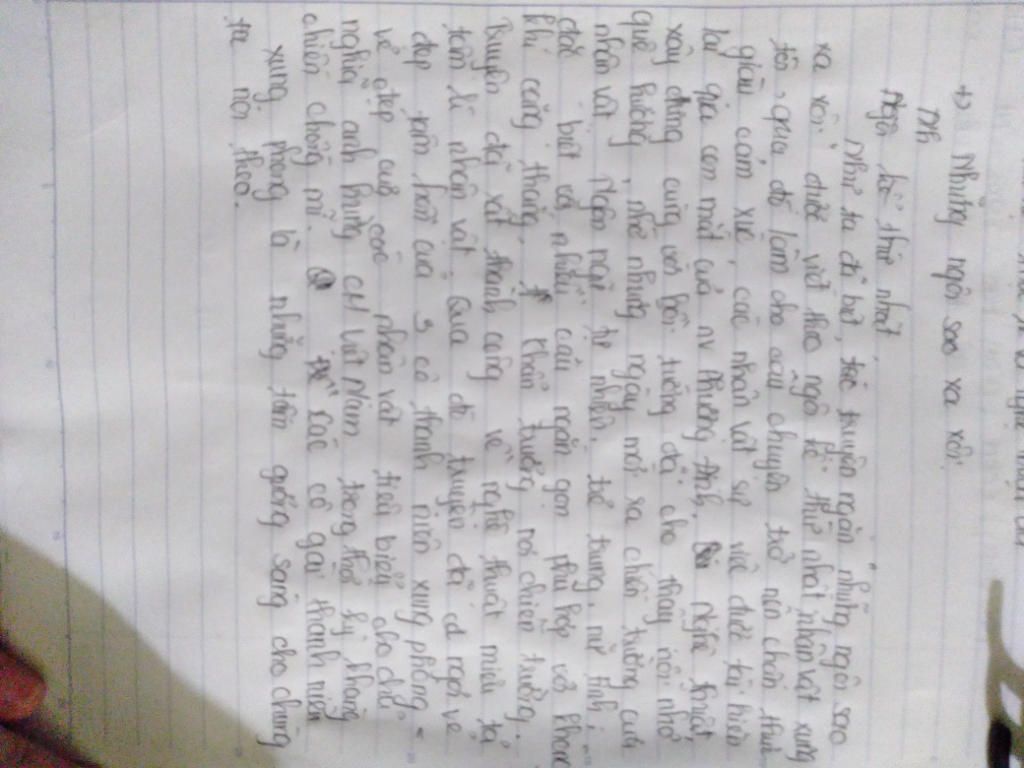 +) Những ngôi sao xa xôi.
Nh
Ngôi kể thứ nhất.
Như ta đã biết, tác truyện ngắn "những ngôi sao
xa xôi" được viết theo ngôi kể thứ nhất nhân vật xưng
tôn, qua đó làm cho câu chuyện trở nên chân thực
giàu cảm xúc, các nhân vật sự việc được tái hiện
lại qua con mắt của nv Phương Định. Nghệ thuật,
xây dựng cùng với hồi tưởng đã cho thấy nỗi nhớ
quê hương, nhớ những ngày mới ra chiến trường của
nhân vật. Ngôn ngữ tự nhiên, trẻ trung, nữ tính,
đặc biệt với nhiều câu ngắn gọn phù hợp với không
khí căng thẳng, khẩn trương nơi chiến trường.
Truyện đã rất thành công về nghệ thuật miêu tả
tâm lí nhân vật. Qua đó truyện đã ca ngợi vẻ
đẹp tâm hồn của 3 cô thanh niên xung phong -
vẻ đẹp của các nhân vật tiêu biểu cho chủ
nghĩa anh hùng CM Việt Nam trong thời kỳ kháng
chiến chống mĩ. Các cô gái thanh niên
xung phong là những tấm gương sáng cho chúng
ta noi theo.